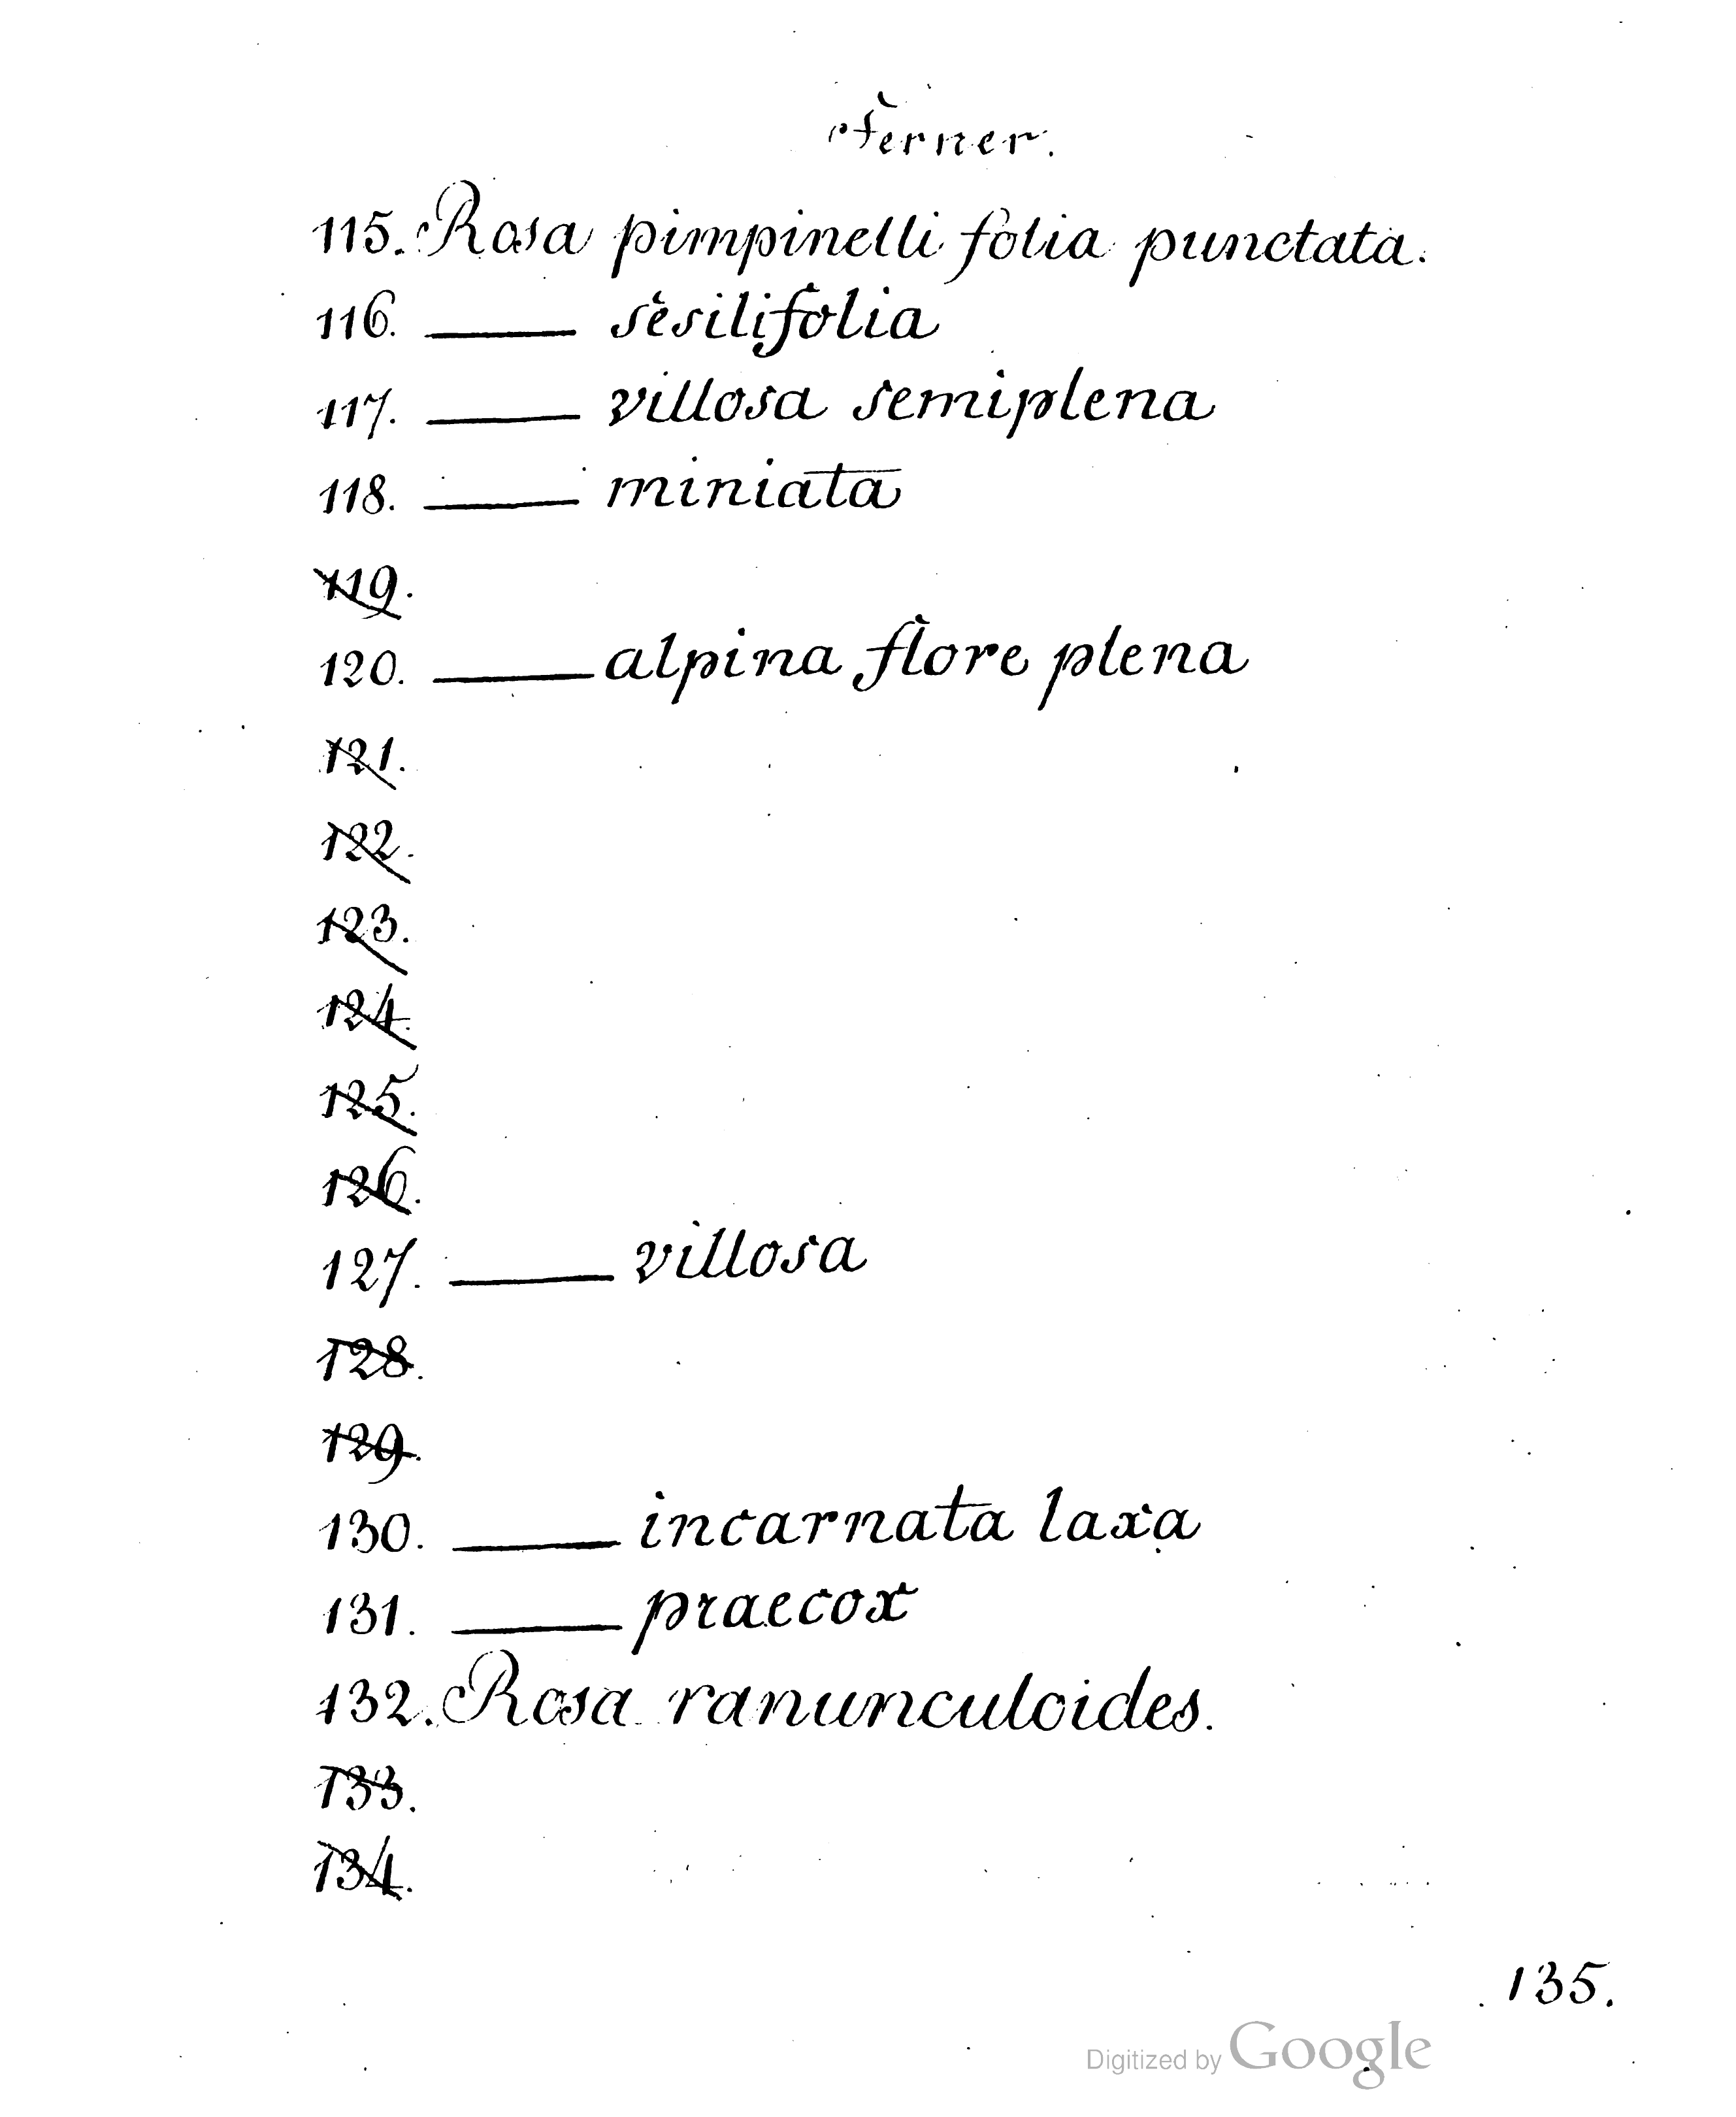 Ferner.
115. Rosa pimpinelli folia punctata.
116. ——— sesilifolia
117. ——— villosa semiplena
118. ——— miniata
119.
120. ——— alpina flore plena
121.
122.
123.
124.
125.
126.
127. ——— villosa
128.
129.
130. ——— incarnata laxa
131. ——— praecox
132. Rosa ranunculoides.
133.
134.
135.
Digitized by Google